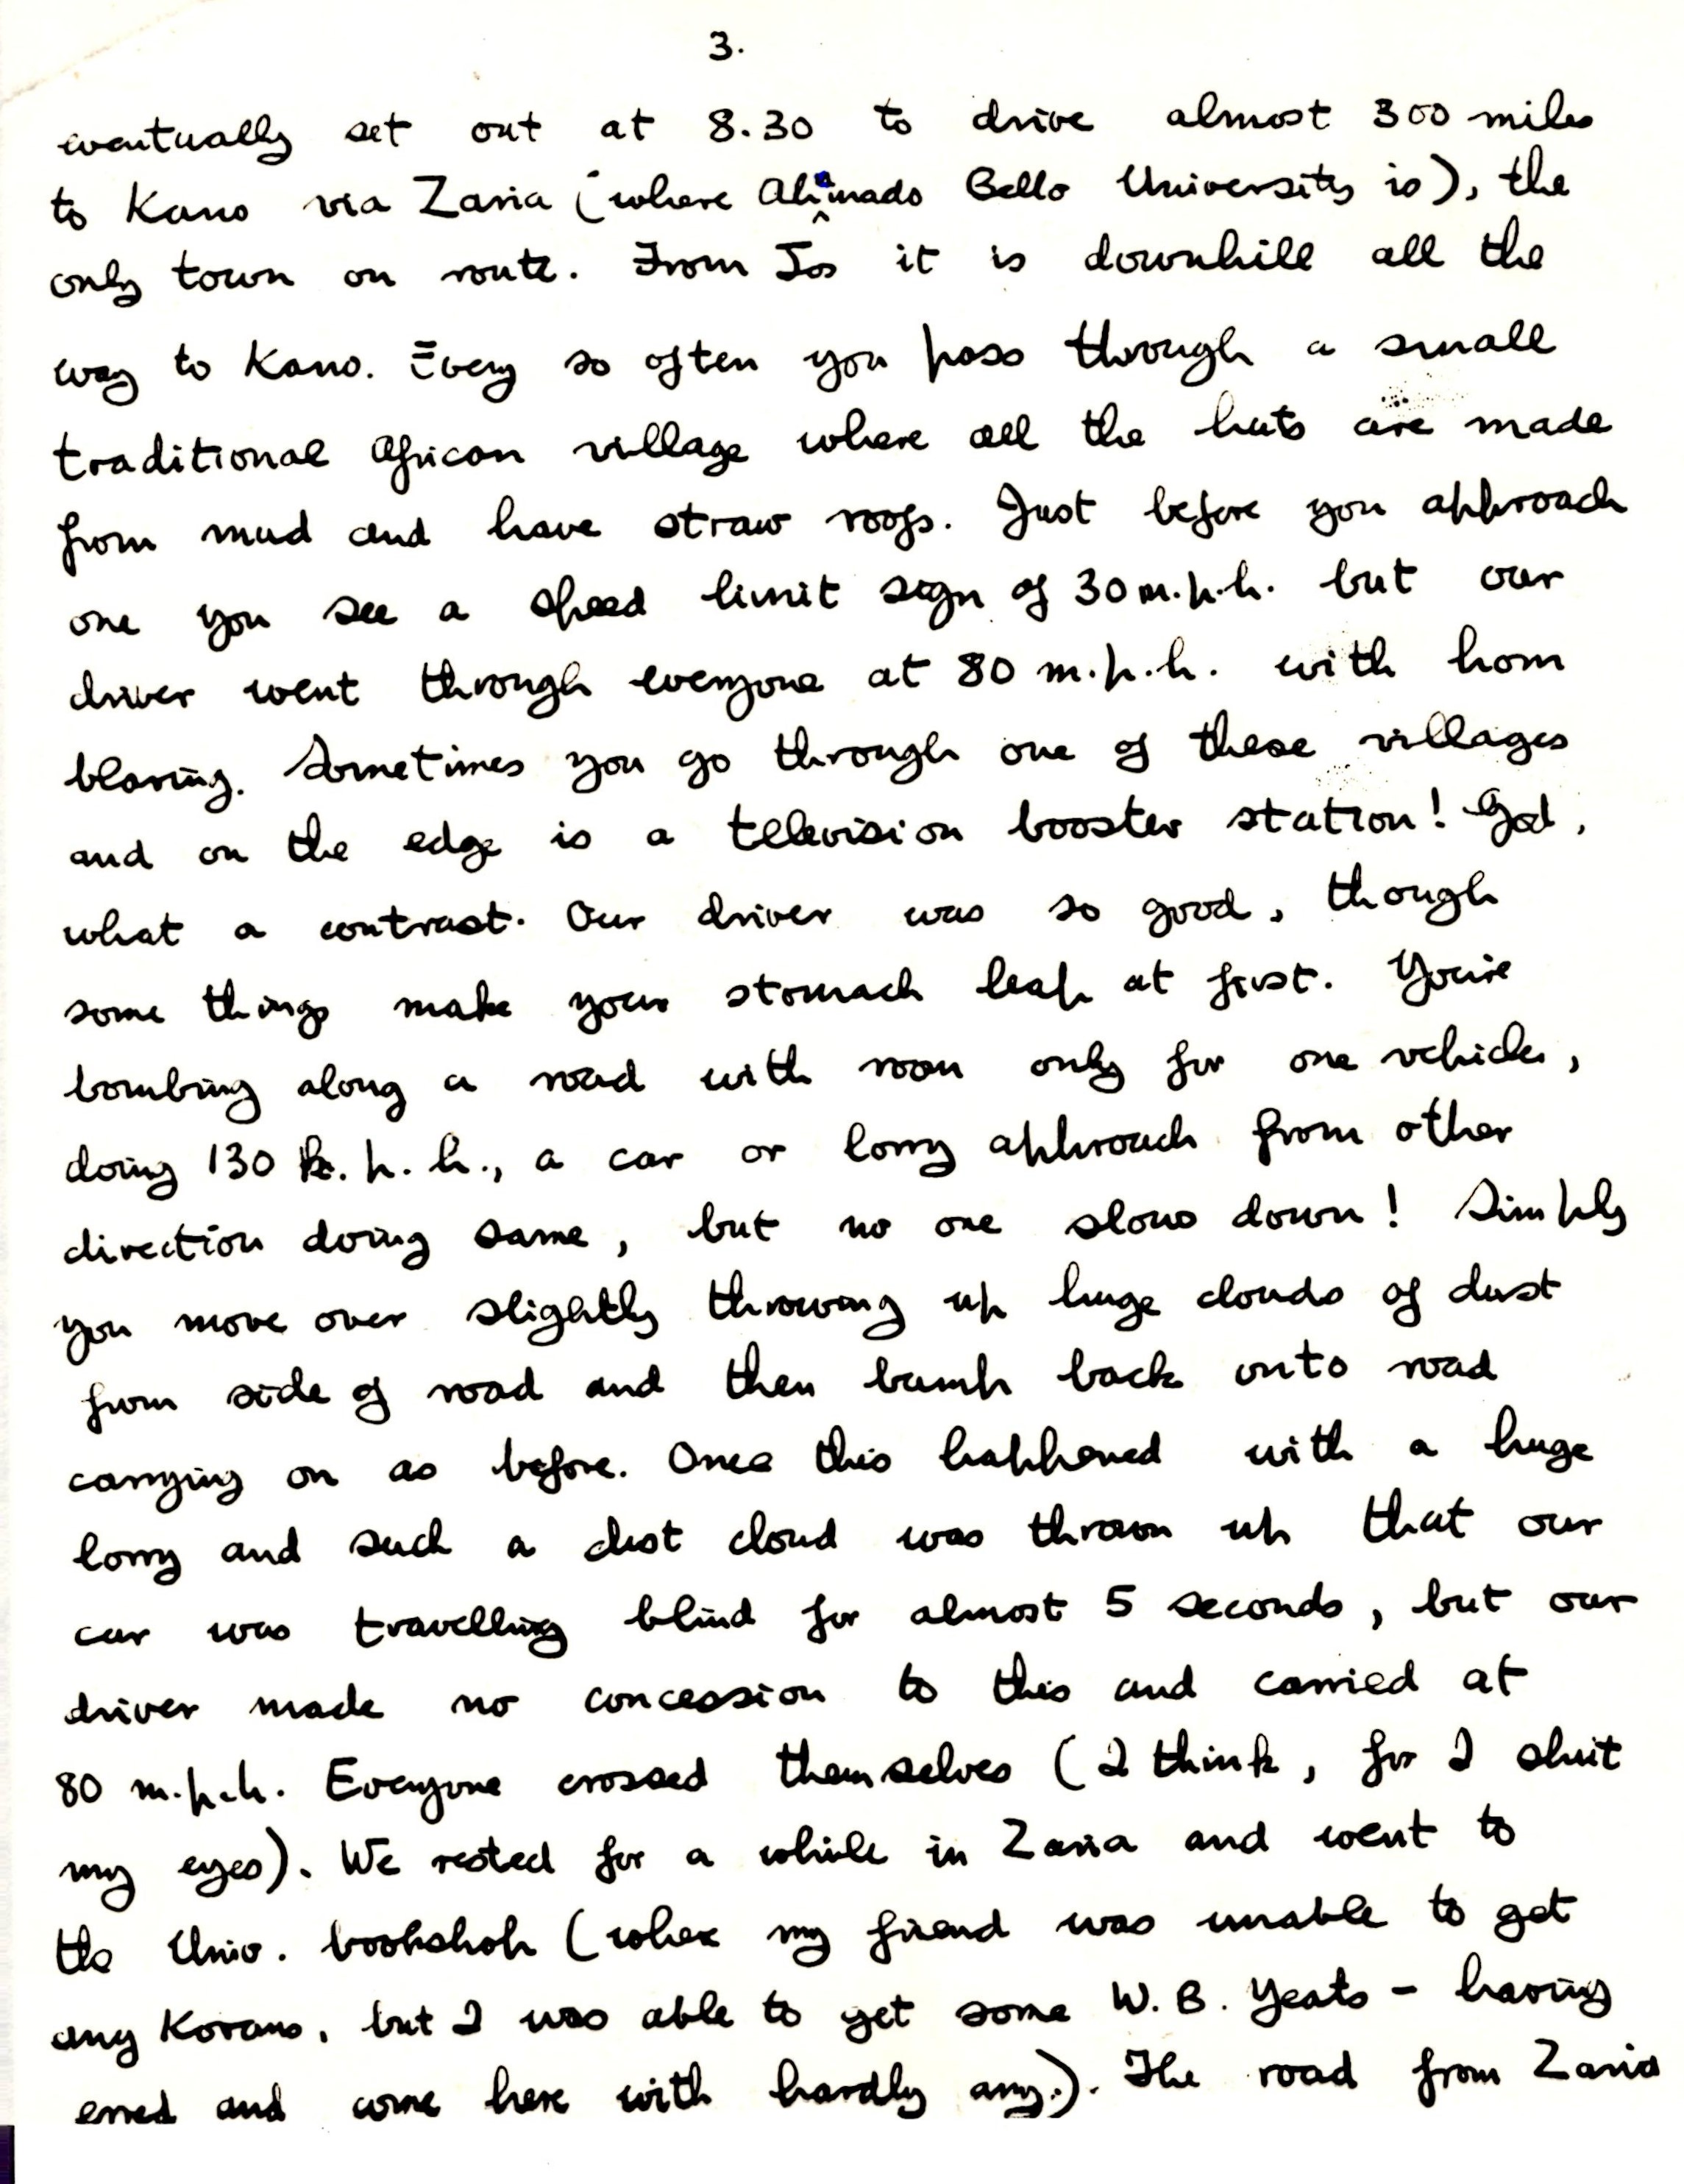 3.
eventually set out at 8.30 to drive almost 300 miles
to Kano via Zaria (where Ahamado Bello University is), the
only town on route. From Jos it is downhill all the
way to Kano. Every so often you pass through a small
traditional African village where all the huts are made
from mud and have straw roofs. Just before you approach
one you see a speed limit sign of 30 m.p.h. but our
driver went through everyone at 80 m.p.h. with horn
blaring. Sometimes you go through one of these villages
and on the edge is a television booster station! God,
what a contrast. Our driver was so good, though
some things make your stomach leap at first. You're
bombing along a road with room only for one vehicle,
doing 130 k.p.h., a car or lorry approach from other
direction doing same, but no one slows down! Simply
you move over slightly throwing up huge clouds of dust
from side of road and then bump back onto road
carrying on as before. Once this happened with a huge
lorry and such a dust cloud was thrown up that our
car was travelling blind for almost 5 seconds, but our
driver made no concession to this and carried at
80 m.p.h. Everyone crossed themselves (I think, for I shut
my eyes). We rested for a while in Zaria and went to
the Univ. bookshop (where my friend was unable to get
any Korans, but I was able to get some W. B. Yeats - having
erred and come here with hardly any.). The road from Zaria